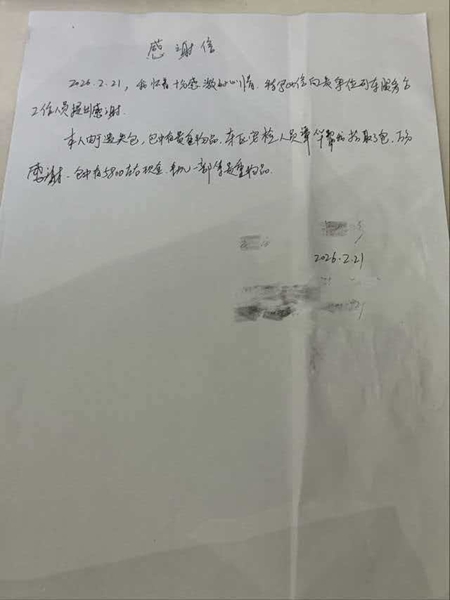 感谢信
2026.2.21，我怀着十分感激的心情，特写此信向贵单位列车服务台
工作人员提出感谢.
本人由于遗失包，包中有贵重物品，在安检人员帮助下拾取了包，万分
感谢.包中有5800元现金.手机一部等贵重物品.
2026.2.21